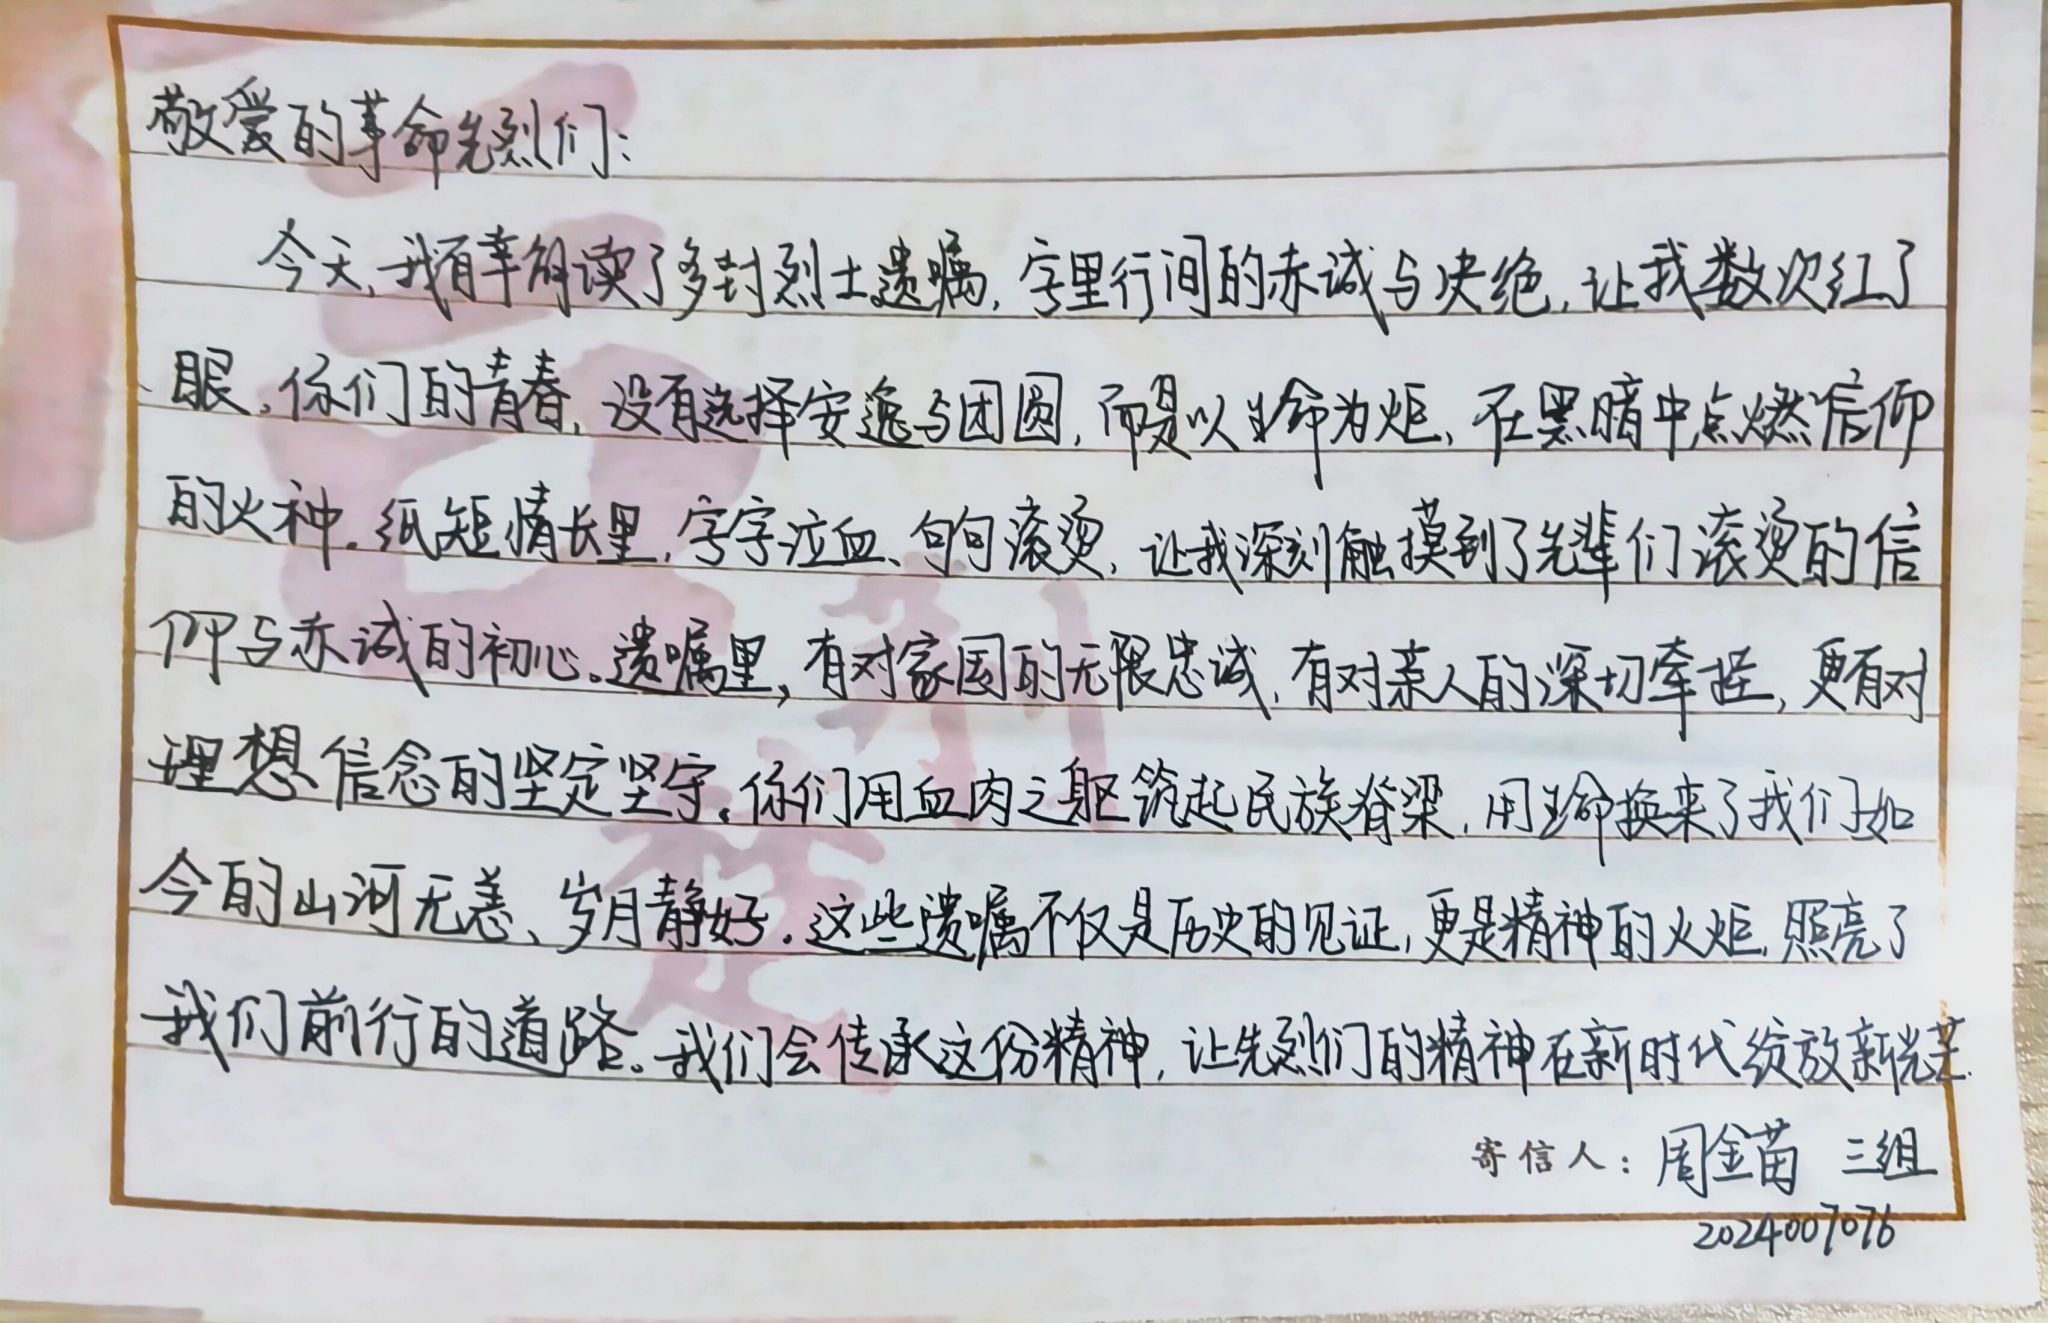 敬爱的革命先烈们：
今天，我有幸解读了多封烈士遗嘱，字里行间的赤诚与决绝，让我数次红了
眼。你们的青春，没有选择安逸与团圆，而是以生命为炬，在黑暗中点燃信仰
的火种。纸短情长里，字字泣血、句句滚烫，让我深刻触摸到了先辈们滚烫的信
仰与赤诚的初心。遗嘱里，有对家国的无限忠诚，有对亲人的深切牵挂，更有对
理想信念的坚定坚守。你们用血肉之躯筑起民族脊梁，用生命换来了我们如
今的山河无恙、岁月静好。这些遗嘱不仅是历史的见证，更是精神的火炬，照亮了
我们前行的道路。我们会传承这份精神，让先烈们的精神在新时代绽放新光芒.
寄信人：周金苗 三组
2024007076